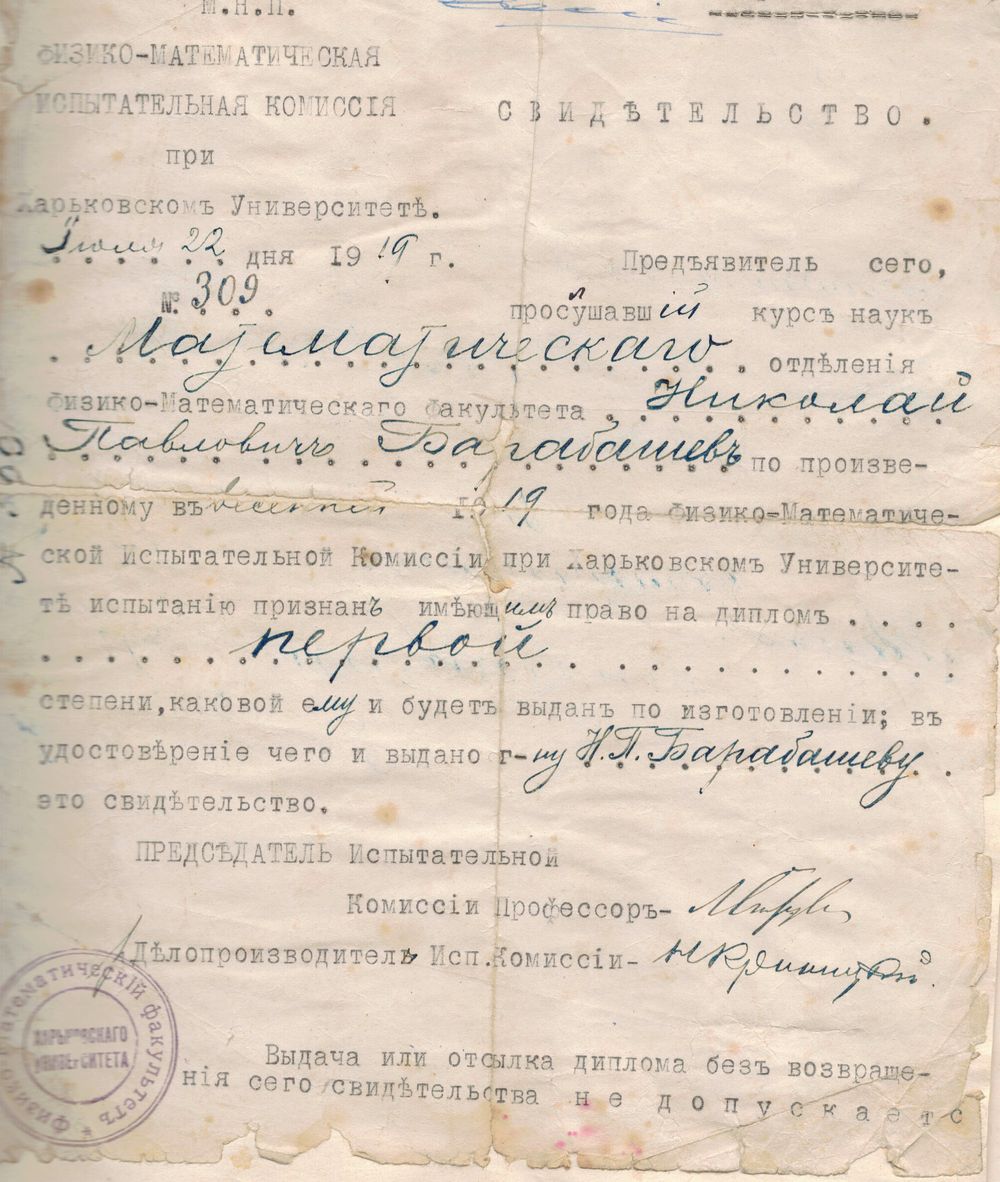 М.Н.П.
ФИЗИКО-МАТЕМАТИЧЕСКАЯ
ИСПЫТАТЕЛЬНАЯ КОМИССІЯ
СВИДѢТЕЛЬСТВО.
при
Харьковскомъ Университетѣ.
Іюля 22 дня 1919 г.
Предъявитель сего,
№ 309
прослушавшій курсъ наукъ
Математическаго отдѣленія
Физико-Математическаго факультета Николай
Павловичъ Барабашевъ по произве-
денному въ весенній 1919 года Физико-Математиче-
ской Испытательной Комиссіи при Харьковскомъ Университе-
тѣ испытанію признанъ имѣющимъ право на дипломъ ....
первой
степени, каковой ему и будетъ выданъ по изготовленіи; въ
удостовѣреніе чего и выдано г-ну Н.П.Барабашеву
это свидѣтельство.
ПРЕДСѢДАТЕЛЬ Испытательной
Комиссіи Профессоръ-
Дѣлопроизводитель Исп.Комиссіи-
Физико-Математическій факультетъ
ХАРЬКОВСКАГО
УНИВЕРСИТЕТА
Выдача или отсылка диплома безъ возвраще-
нія сего свидѣтельства не допускаетс